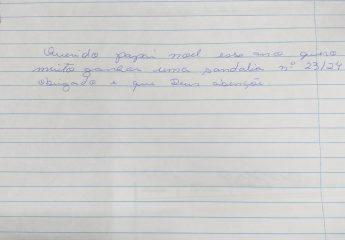 Querido papai noel esse ano quero
muito ganhar uma sandalia nº 23/24
obrigado e que Deus abençoe.